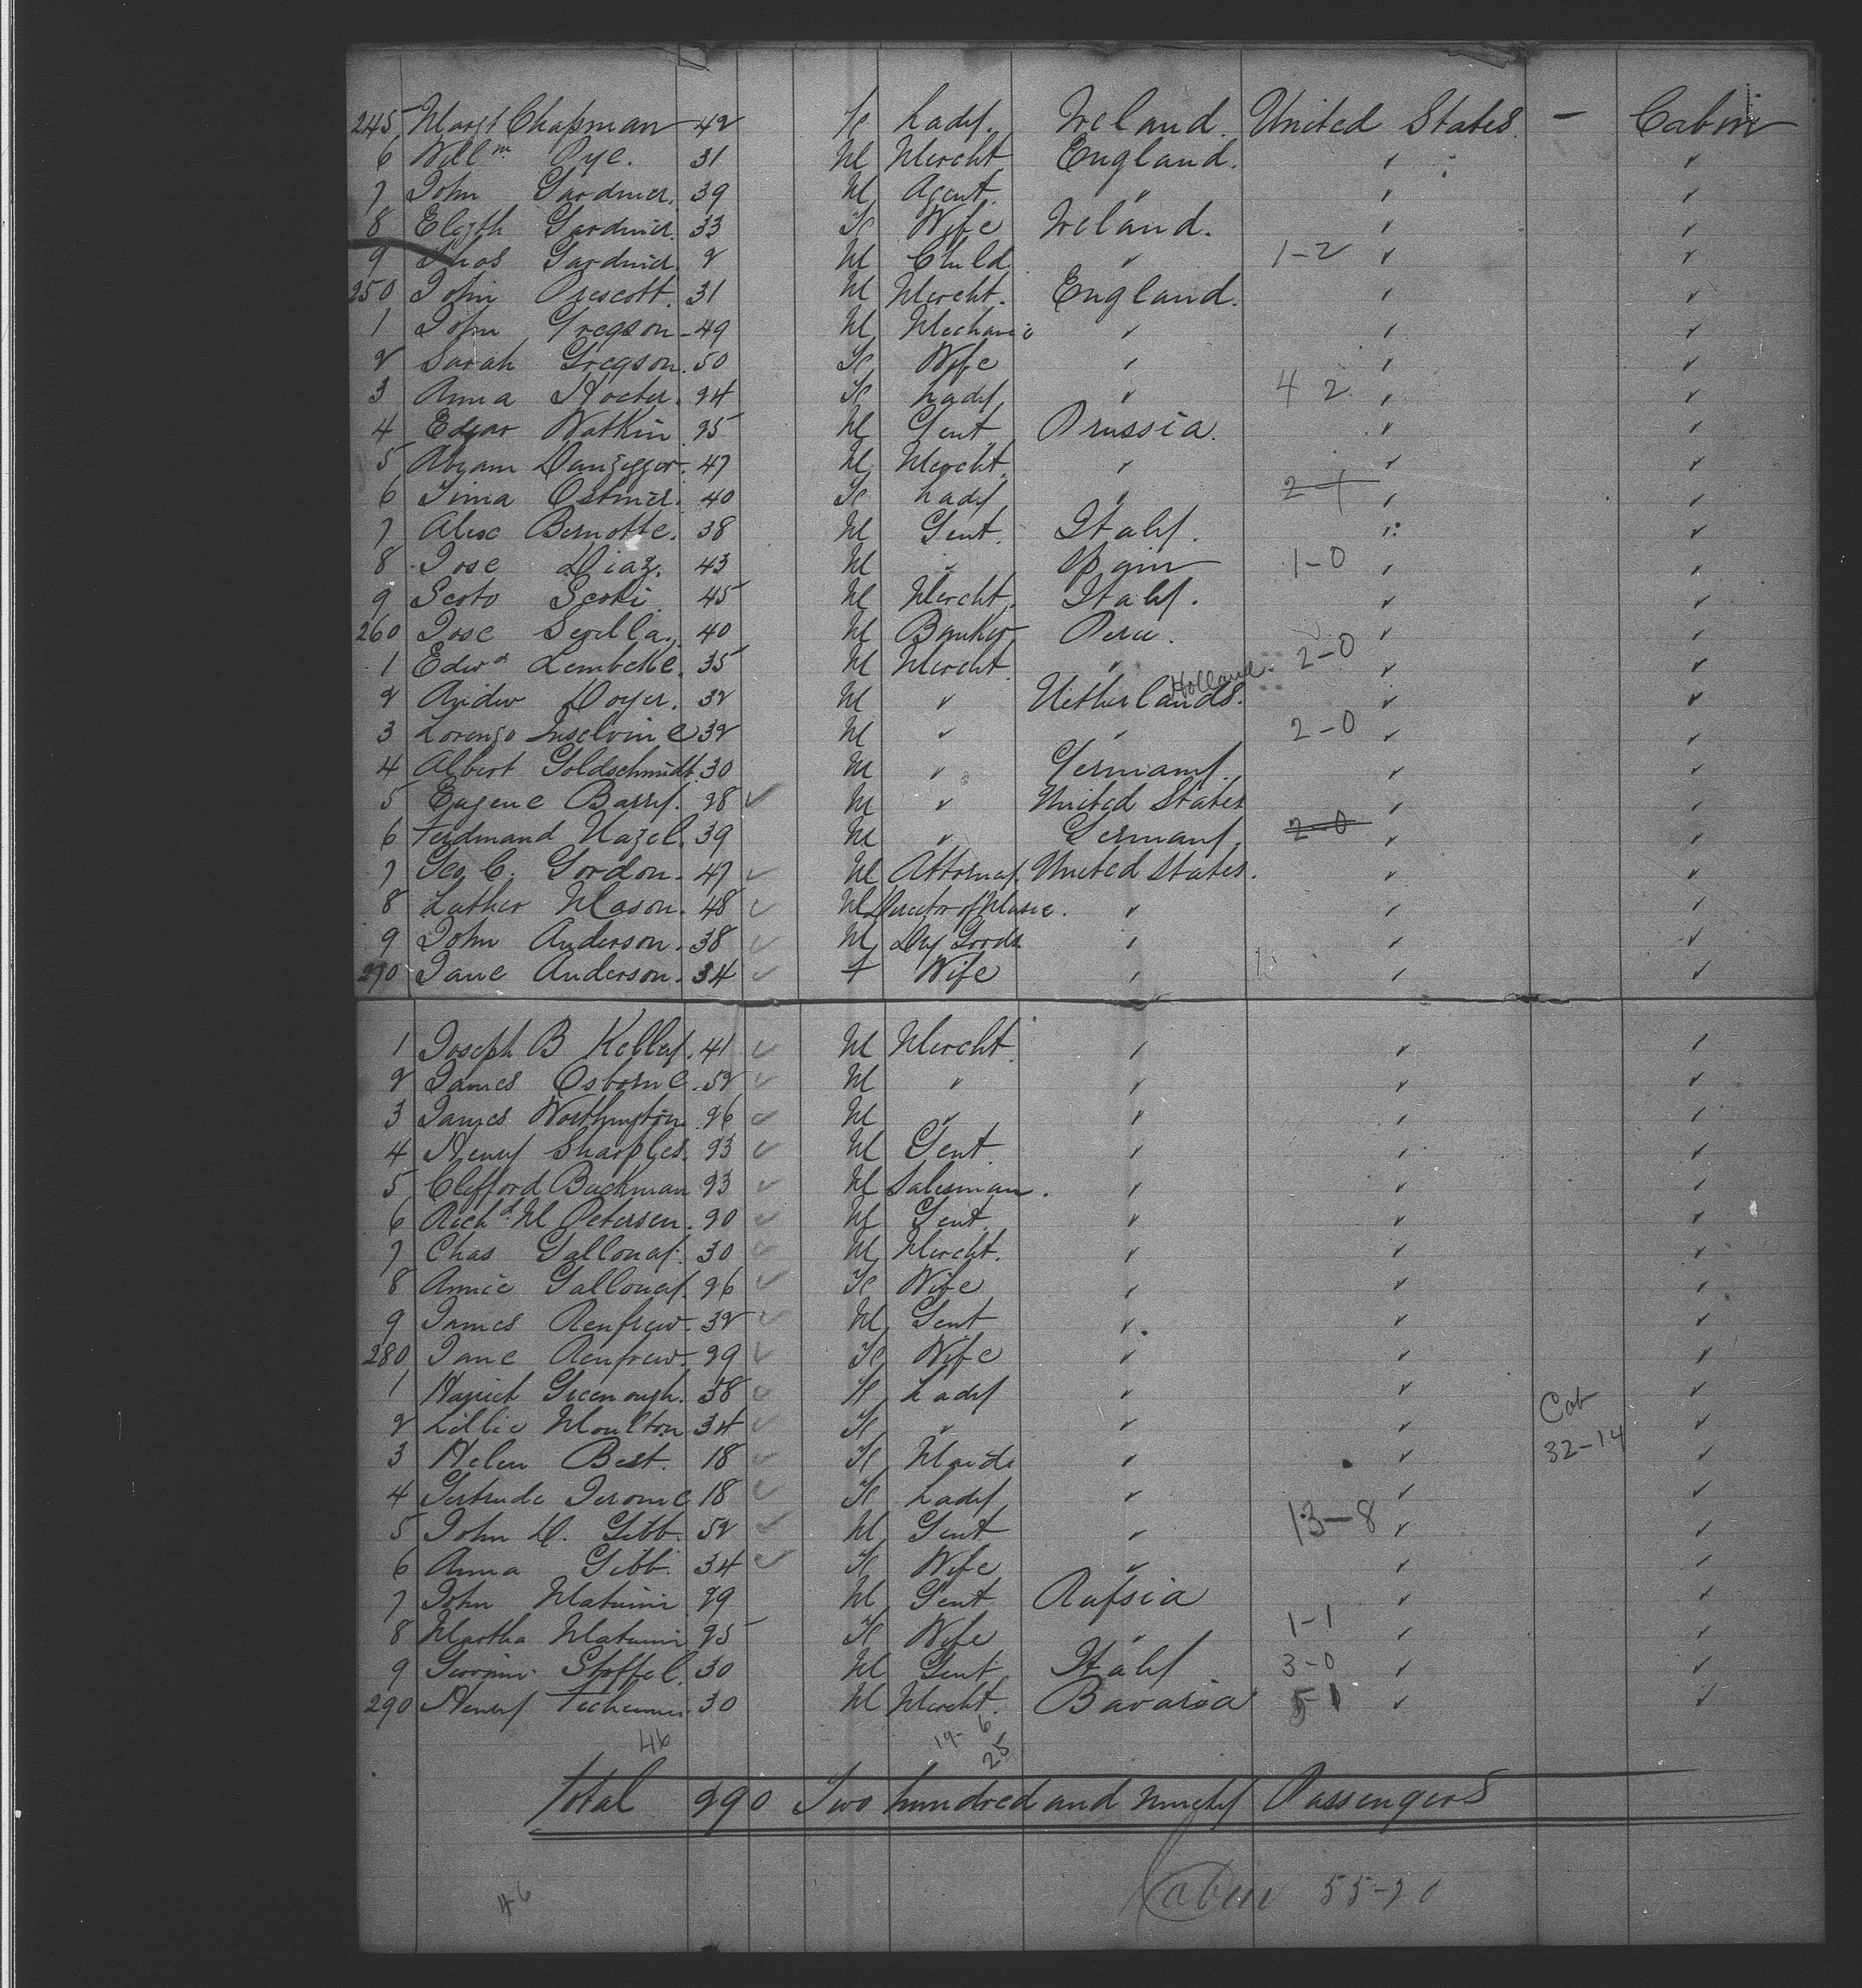 245 Margt Chapman 42 Fe Lady. Ireland. United States. - Cabin
6 Willm Pye. 31 M Mercht England. ✓ ✓
7 John Gardner. 39 M Agent. " ✓ ✓
8 Elizth Gardner. 33 Fe Wife Ireland. ✓ ✓
9 Thos Gardner. 2 M Child. ✓ 1-2 ✓ ✓
250 John Prescott. 31 M Mercht. England. ✓ ✓
1 John Gregson 49 M Mechanic ✓ ✓ ✓
2 Sarah Gregson. 50 Fe Wife ✓ ✓ ✓
3 Anna Hocter. 24 Fe Lady ✓ 4 2 ✓ ✓
4 Edgar Watkin 25 M Gent Prussia. ✓ ✓
5 Abram Danzigger. 47 M Mercht. ✓ ✓ ✓
6 Ostner. 40 Fe Lady ✓ 2-1 ✓ ✓
7 Alex Bernotte. 38 M Gent. Italy. ✓ ✓
8 Jose Diaz. 43 M ✓ Spain 1-0 ✓ ✓
9 Scoto Scoti 45 M Mercht. Italy. ✓ ✓
260 Jose Sevilla. 40 M Banker Peru. ✓ ✓
1 Edwd Lembcke. 35 M Mercht. " 2-0 ✓ ✓
2 Andw Doyer. 32 M ✓ Netherlands. Holland. ✓ ✓
3 Lorenzo 32 M ✓ ✓ 2-0 ✓ ✓
4 Albert Goldschmidt. 30 M ✓ Germany. ✓ ✓
5 Eugene Barry. 28 ✓ M ✓ United States ✓ ✓
6 Ferdinand Nazel. 39 M ✓ Germany, 2-0 ✓ ✓
7 Geo. C. Gordon. 47 ✓ M Attorney. United States. ✓ ✓
8 Luther Mason. 48 ✓ M Director of Music. ✓ ✓ ✓
9 John Anderson. 38 ✓ M Dry Goods ✓ ✓ ✓
270 Jane Anderson. 34 ✓ f Wife ✓ ✓ ✓
1 Joseph B Kelley. 41 ✓ M Mercht. ✓ ✓ ✓
2 James Osborne. 52 ✓ M ✓ ✓ ✓ ✓
3 James Worthington 26 ✓ M ✓ ✓ ✓ ✓
4 Henry Sharples. 23 ✓ M Gent. ✓ ✓ ✓
5 Clifford Buckman 23 ✓ M Salesman. ✓ ✓ ✓
6 Richd M Petersen. 20 ✓ M Gent. ✓ ✓ ✓
7 Chas Galloway. 30 ✓ M Mercht. ✓ ✓ ✓
8 Annie Galloway. 26 ✓ Fe Wife ✓ ✓ ✓
9 James Renfrew. 32 ✓ M Gent ✓ ✓ ✓
280 Jane Renfrew. 29 ✓ Fe Wife ✓ ✓ ✓
1 Harriet Greenough. 58 ✓ Fe Lady ✓ ✓ ✓
2 Lillie Moulton 34 ✓ Fe " ✓ ✓ Cab ✓
3 Helen Best. 18 ✓ Fe Maid ✓ ✓ 32-14 ✓
4 Gertrude Jerome 18 ✓ Fe Lady ✓ ✓ ✓
5 John D. Gibb. 52 ✓ M Gent ✓ 13-8 ✓ ✓
6 Anna Gibb. 34 ✓ Fe Wife ✓ ✓ ✓
7 John 29 M Gent Russia ✓ ✓
8 Martha 25 Fe Wife " 1-1 ✓ ✓
9 Stoffel. 30 M Gent, Italy 3-0 ✓ ✓
290 Henry 30 M Mercht. Bavaria 5-1 ✓ ✓
46 19-6
25
Total 290 Two hundred and ninety Passengers
Cabin 55-20
46